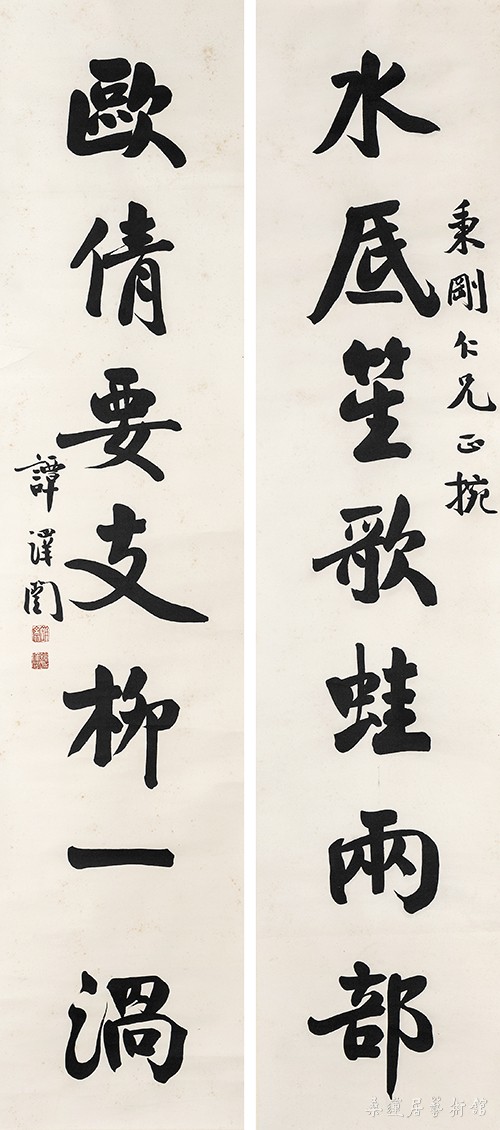 秉剛仁兄正捥
水底笙歌蛙兩部
歐倩要支柳一渦
譚澤闓
桑蓮居藝術館